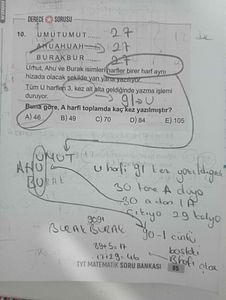 DERECE SORUSU
10. UMUTUMUT ... 27
AHUAHUAH → 27
BURAKBUR → 27
Umut, Ahu ve Burak isimleri harfler birer harf aynı
hizada olacak şekilde yan yana yazılıyor.
Tüm U harfleri 3. kez alt alta geldiğinde yazma işlemi
duruyor.
91→U
Buna göre, A harfi toplamda kaç kez yazılmıştır?
A) 46 B) 49 C) 70 D) 84 E) 105
UMUT
AHU
BURAK
U harfi 91 kez yazıldığında
30 tane A
30 a dan 1A
29
9091
BURAKBURAK
90-1 çünkü
29+5=17
17+29=46
TYT MATEMATİK SORU BANKASI 85